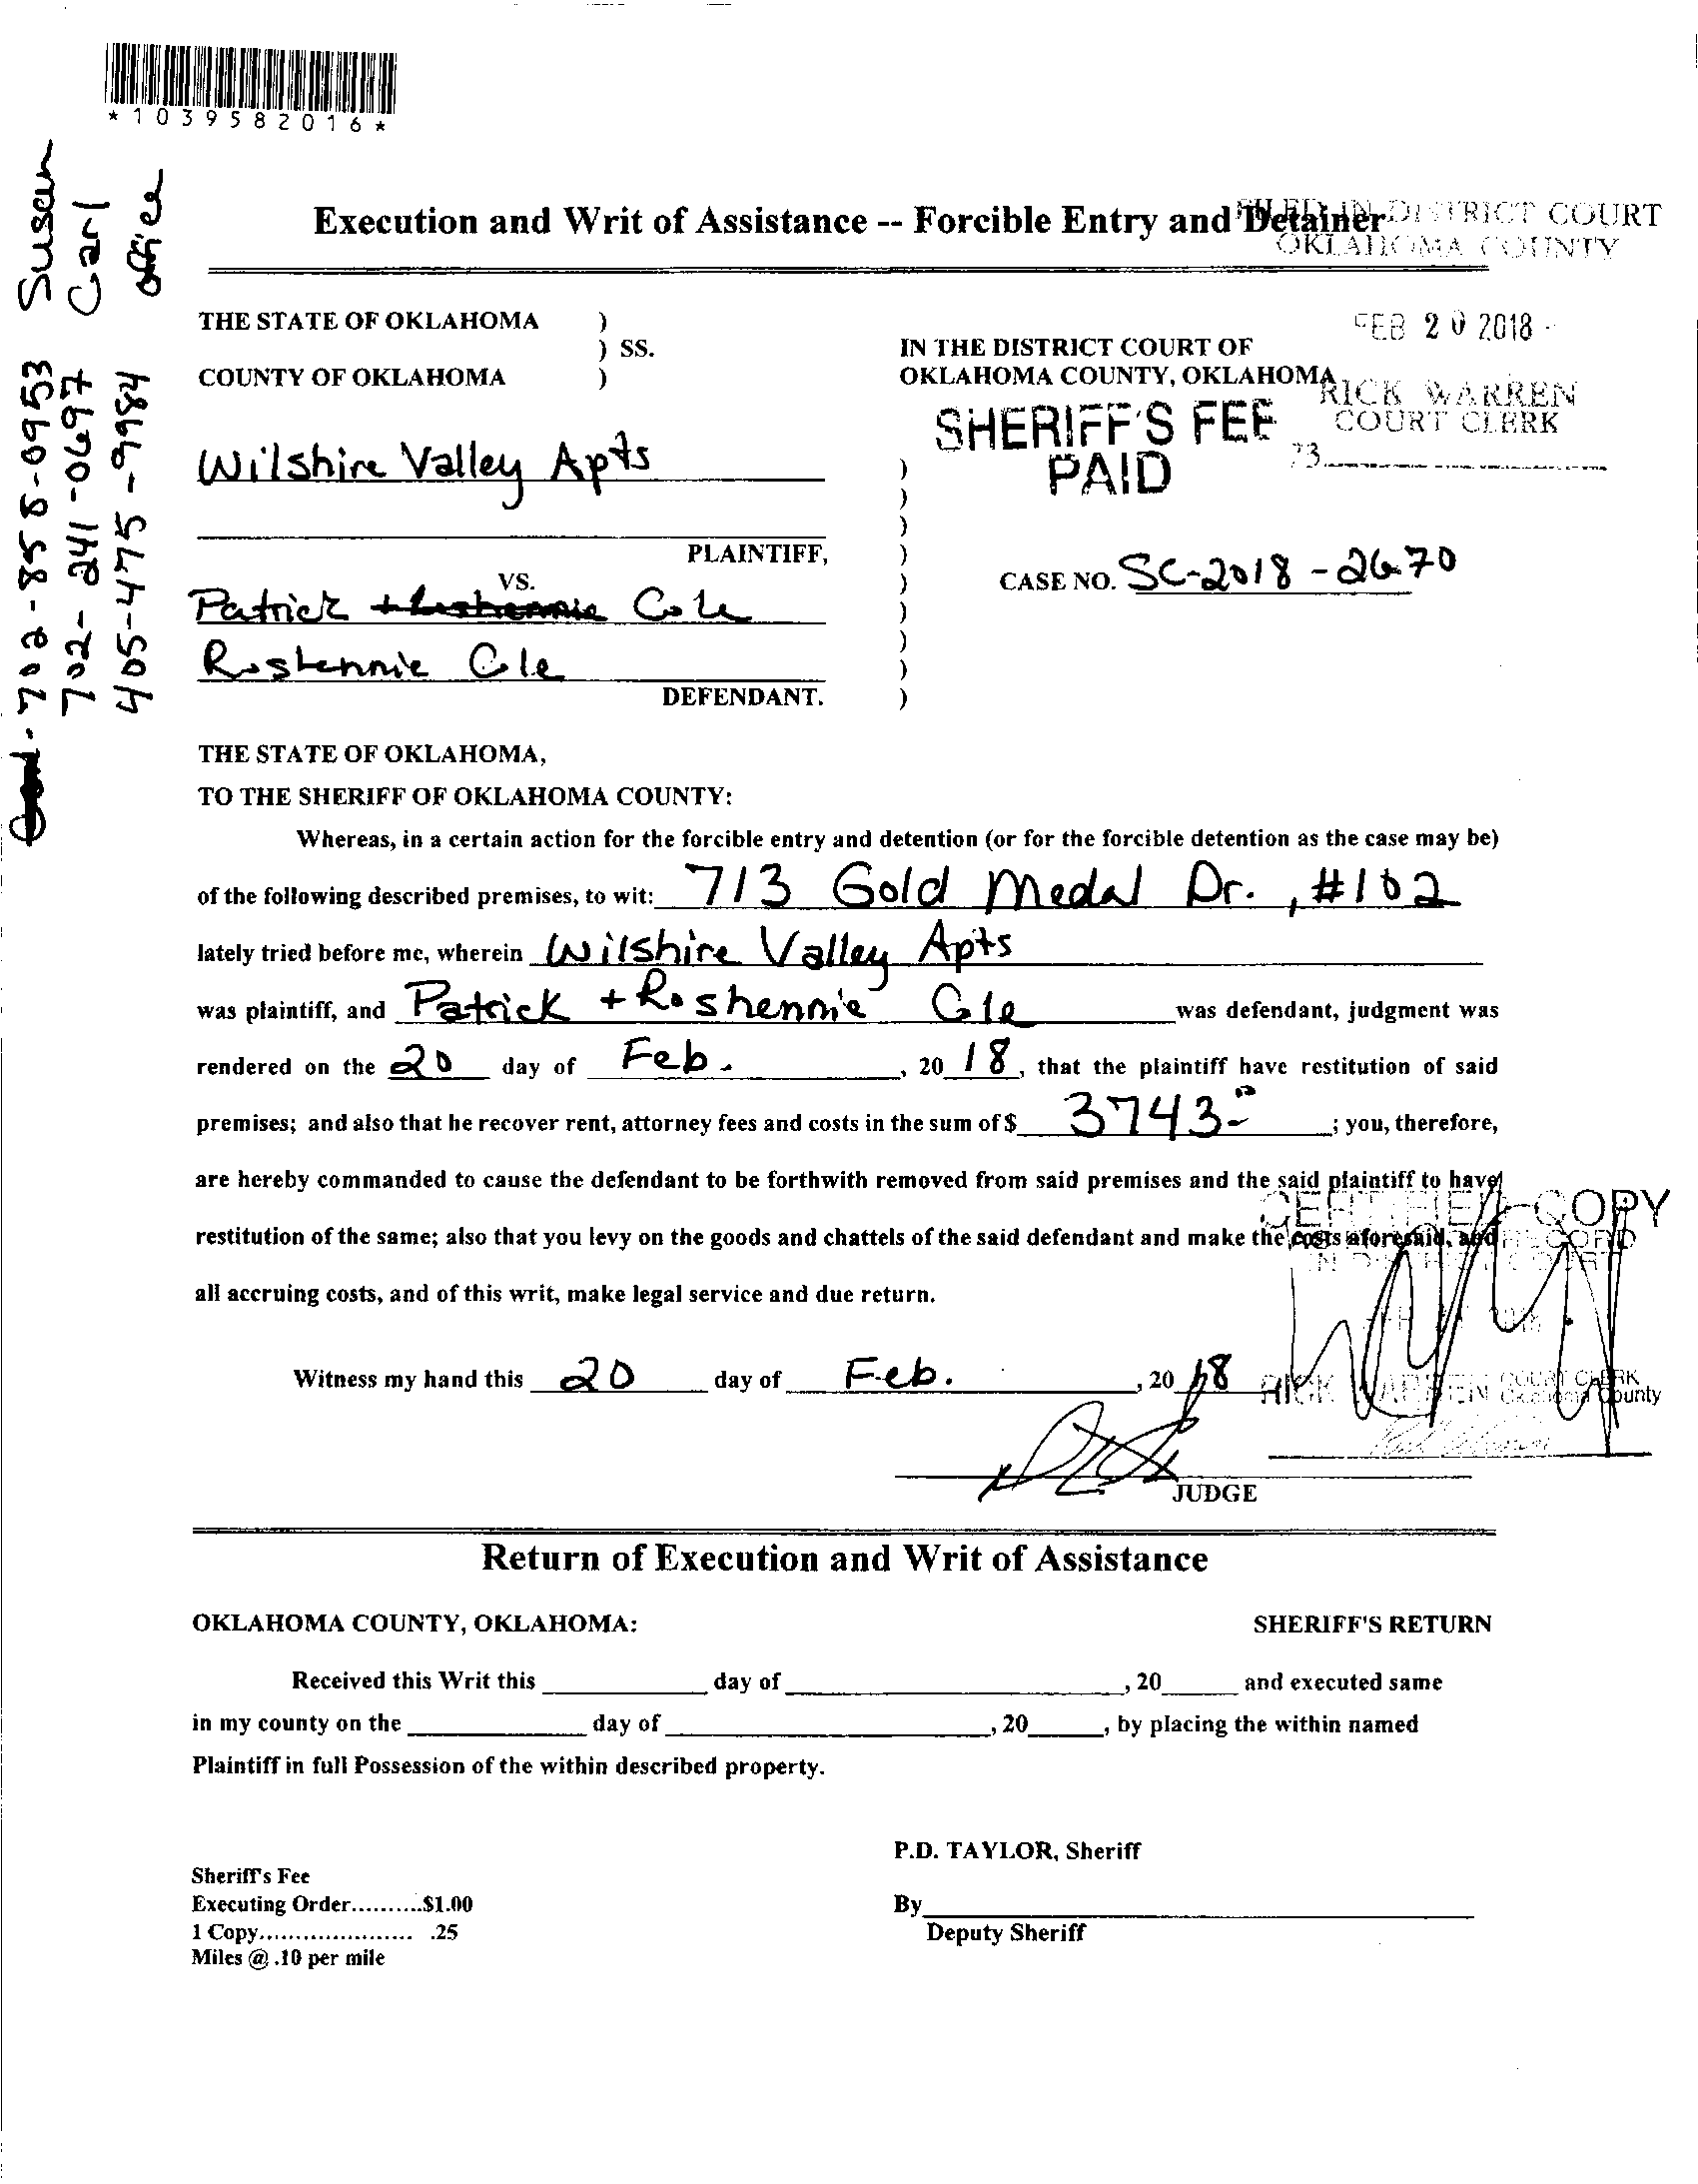 *1039582016*
702-858-0953 Susan
702-241-0697 Carl
405-475-9984 office
Execution and Writ of Assistance -- Forcible Entry and Detainer
FILED IN DISTRICT COURT
OKLAHOMA COUNTY
FEB 20 2018
RICK WARREN
COURT CLERK
73
THE STATE OF OKLAHOMA )
) SS.
COUNTY OF OKLAHOMA )
IN THE DISTRICT COURT OF
OKLAHOMA COUNTY, OKLAHOMA
SHERIFF'S FEE
PAID
Wilshire Valley Apts )
)
)
PLAINTIFF, )
VS. )
CASE NO. SC-2018-2670
Patrick + Roshennie Cole )
)
Roshennie Cole )
DEFENDANT. )
THE STATE OF OKLAHOMA,
TO THE SHERIFF OF OKLAHOMA COUNTY:
Whereas, in a certain action for the forcible entry and detention (or for the forcible detention as the case may be)
of the following described premises, to wit: 713 Gold Medal Dr., #102
lately tried before me, wherein Wilshire Valley Apts
was plaintiff, and Patrick + Roshennie Cole was defendant, judgment was
rendered on the 20 day of Feb. , 20 18, that the plaintiff have restitution of said
premises; and also that he recover rent, attorney fees and costs in the sum of $ 3743 ; you, therefore,
are hereby commanded to cause the defendant to be forthwith removed from said premises and the said plaintiff to have
restitution of the same; also that you levy on the goods and chattels of the said defendant and make the costs aforesaid, and
all accruing costs, and of this writ, make legal service and due return.
CERTIFIED COPY
RECORD
IN DISTRICT COURT
Witness my hand this 20 day of Feb. , 20 18
RICK WARREN COURT CLERK
Oklahoma County
JUDGE
Return of Execution and Writ of Assistance
OKLAHOMA COUNTY, OKLAHOMA: SHERIFF'S RETURN
Received this Writ this day of , 20 and executed same
in my county on the day of , 20 , by placing the within named
Plaintiff in full Possession of the within described property.
P.D. TAYLOR, Sheriff
Sheriff's Fee
Executing Order..........$1.00
1 Copy..................... .25
Miles @ .10 per mile
By
Deputy Sheriff